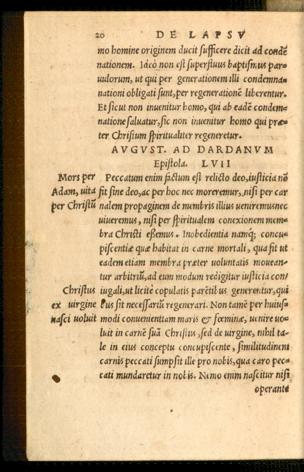 20 DE LAPSV
mo homine originem ducit sufficere dicit ad condē
nationem. Ideò non est superfluus baptismus par-
uulorum, ut qui per generationem illi condemna-
nationi obligati sunt, per regenerationē liberentur.
Et sicut non inuenitur homo, qui ab eadē condem-
natione saluatur, sic non inuenitur homo qui præ-
ter Christum spiritualiter regeneretur.
AVGVST. AD DARDANVM
Epistola. LVII
Mors per
Adam, uita
per Christū
Peccatum enim factum est relicto deo, iusticia nō
fit sine deo, ac per hoc nec moreremur, nisi per car
nalem propaginem de membris illius ueniremus nec
uiueremus, nisi per spiritualem conexionem mem-
bra Christi essemus. Inobedientia namq; concu-
piscentiæ quæ habitat in carne mortali, qua sit ut
eadem etiam membra præter uoluntatis mouean-
tur arbitriū, ad eum modum redigitur iusticia con
Christus
ex uirgine
nasci uoluit
iugali, ut licitè copulatis parētibus generentur, qui
bus sit necessariū regenerari. Non tamē per huius-
modi conuenientiam maris & fœminæ, uenire uo-
luit in carnē suā Christus, sed de uirgine, nihil ta-
le in eius conceptu concupiscente, similitudinem
carnis peccati sumpsit ille pro nobis, qua caro pec-
cati mundaretur in nobis. Nemo enim nascitur nisi
operante